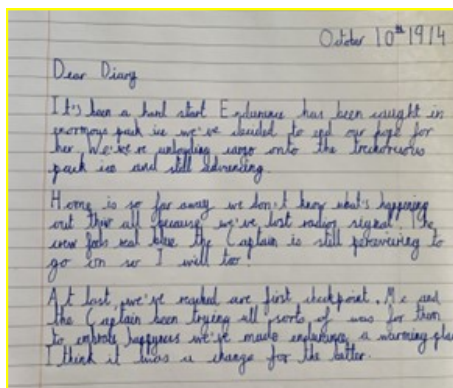 October 10th 1914
Dear Diary
It's been a hard start Endurance has been caught in
enormous pack ice we've decided to end our hope for
her. We're unloading cargo onto the treacherous
pack ice and still advencing.
Home is so far away we don't know what's happening
out their all because we've lost radio signal. The
crew feels real blue the Captain is still perceviring to
go on so I will too.
At last, we've reached are first checkpoint. Me and
the Captain been trying all sorts of was for them
to happyness we've made endurance a warming place
I think it was a change for the better.